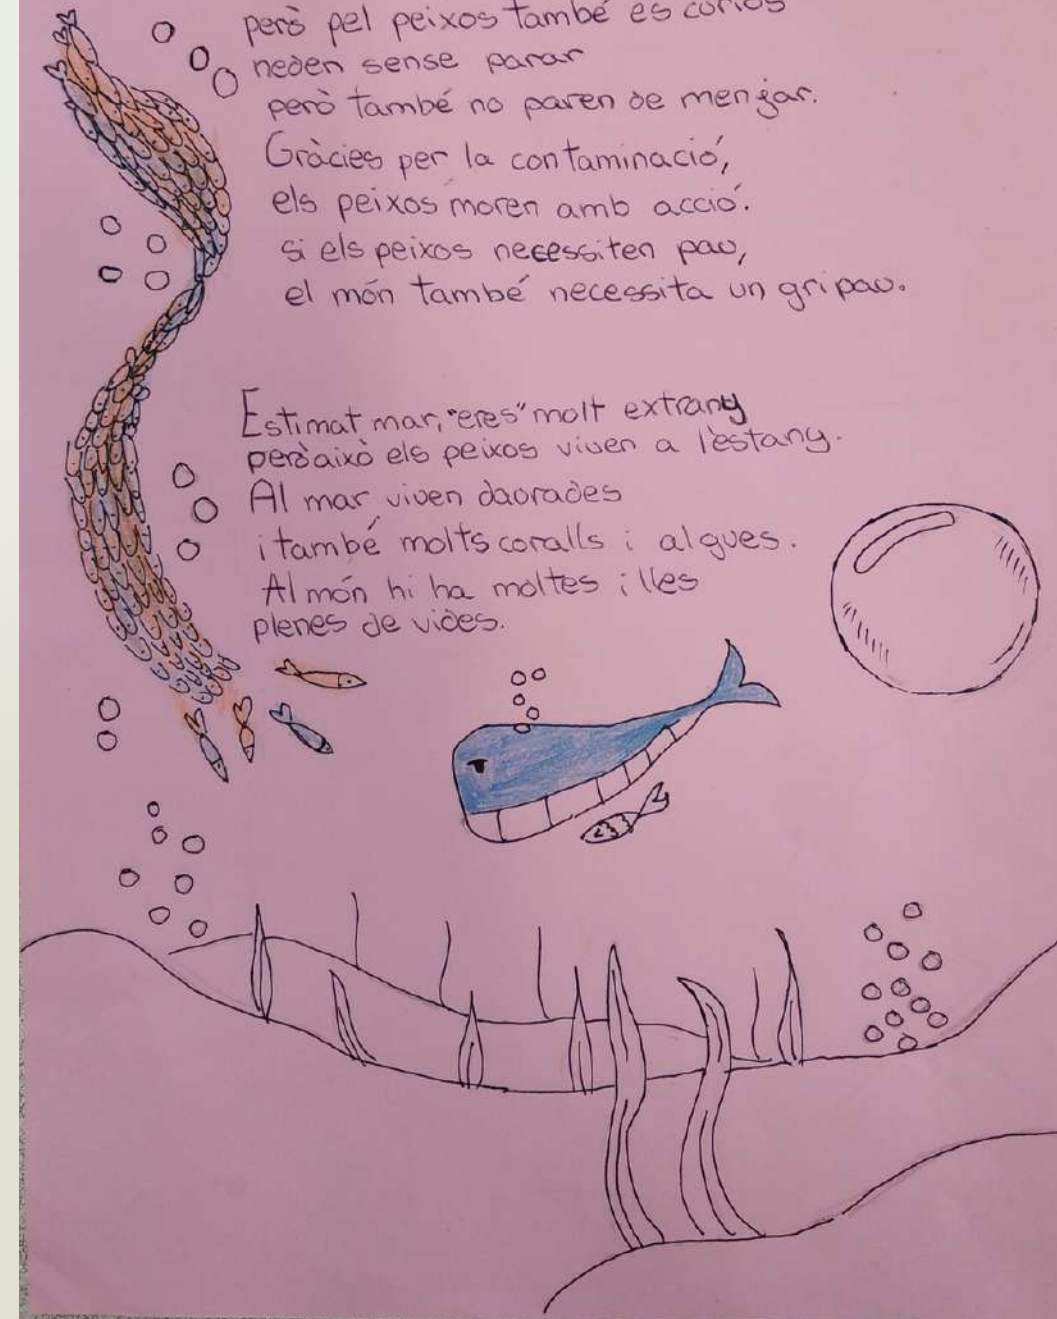 però pel peixos també es curiós
neden sense parar
però també no paren de menjar.
Gràcies per la contaminació,
els peixos moren amb acció.
si els peixos necessiten pau,
el món també necessita un gripau.
Estimat mar, "eres" molt extrany
però això els peixos viuen a l'estany.
Al mar viuen daurades
i també molts coralls i algues.
Al món hi ha moltes illes
plenes de vides.